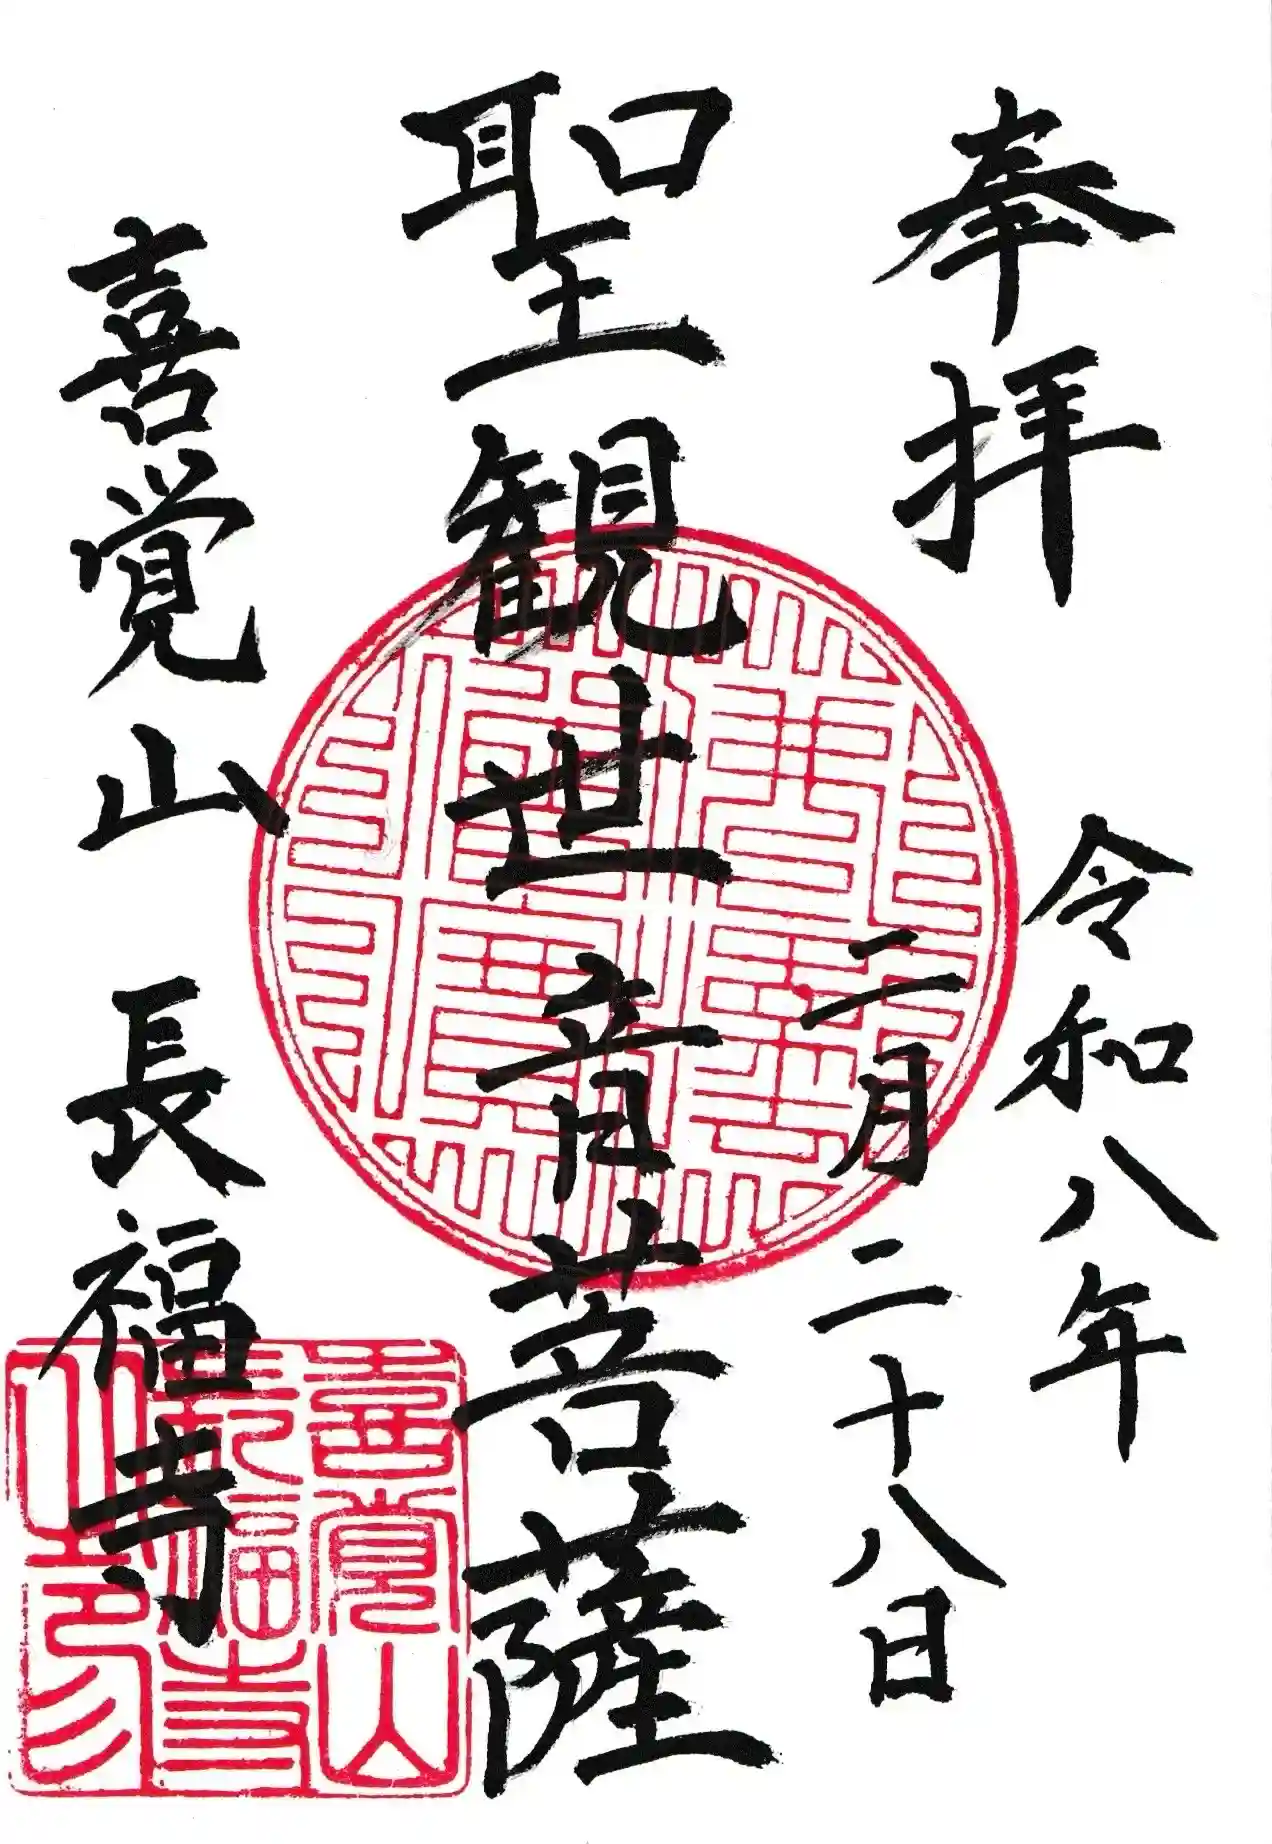 奉拝
令和八年
二月二十八日
聖観世音菩薩
喜覚山 長福寺
喜覚山
長福寺